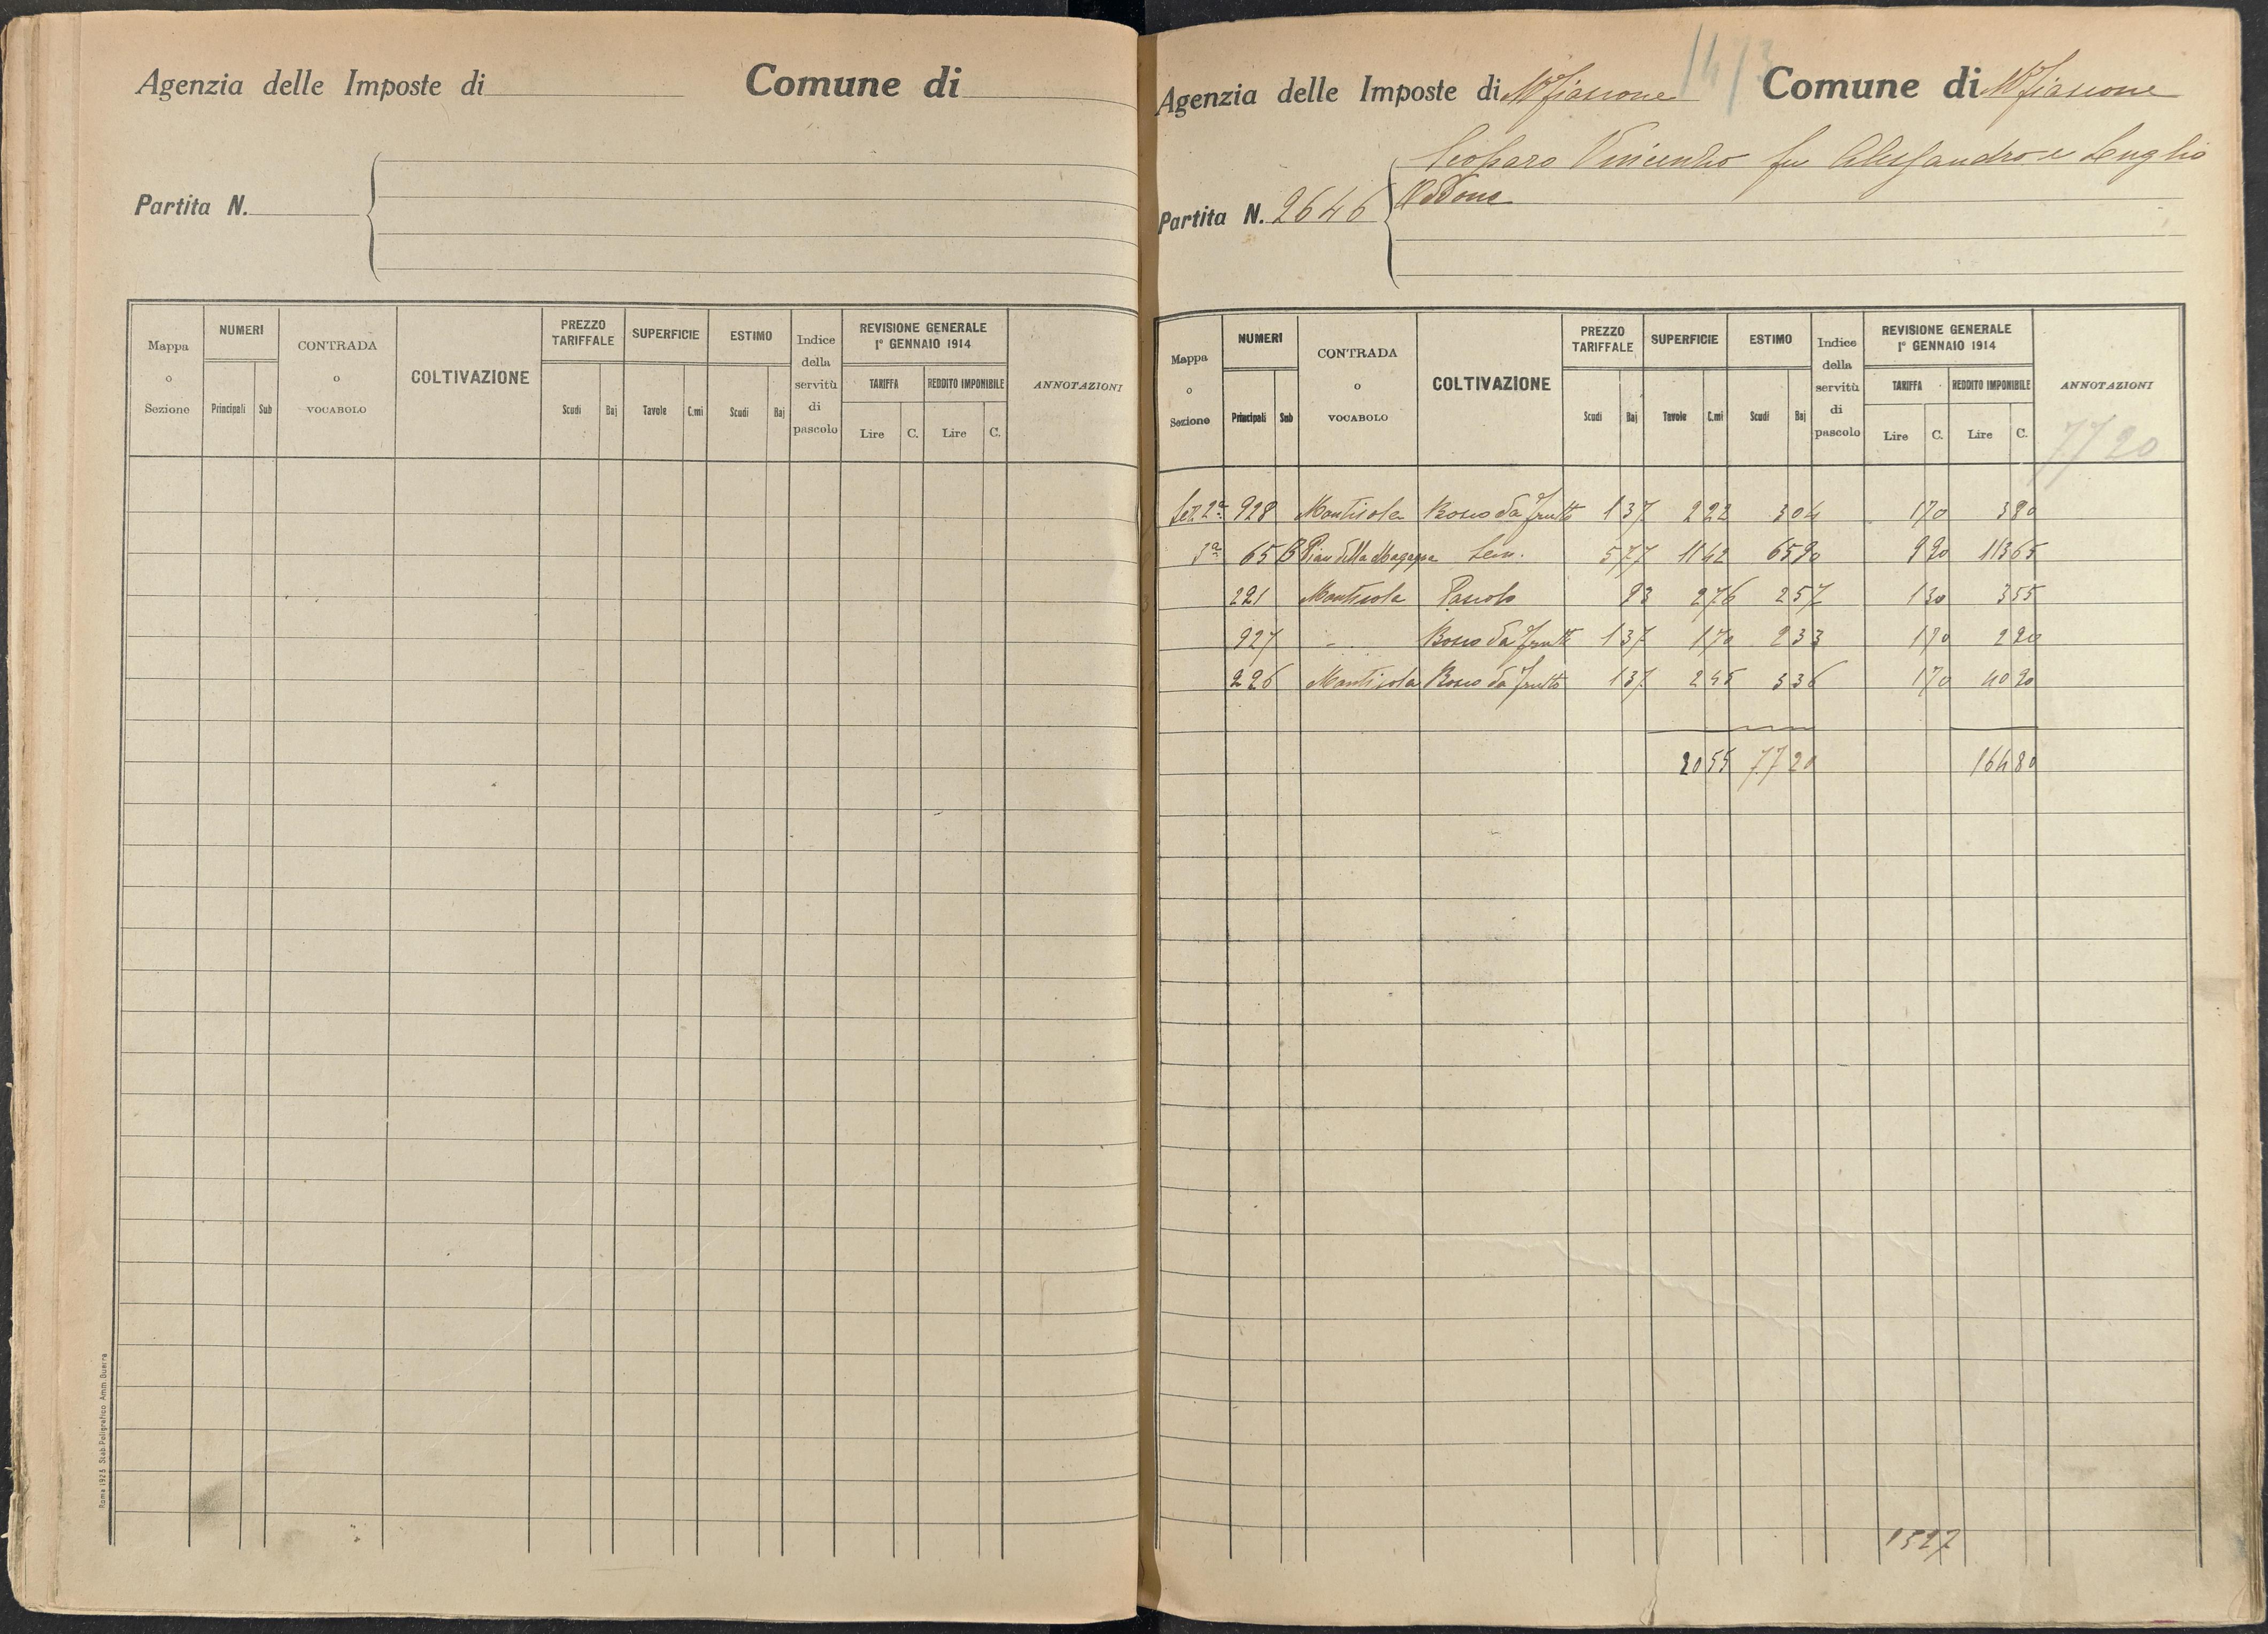 Agenzia delle Imposte di
Comune di
Partita N.
Mappa o Sezione
NUMERI
Principali Sub
CONTRADA o VOCABOLO
COLTIVAZIONE
PREZZO TARIFFALE
Scudi Baj
SUPERFICIE
Tavole C.mi
ESTIMO
Scudi Baj
Indice della servitù di pascolo
REVISIONE GENERALE
1° GENNAIO 1914
TARIFFA
Lire C.
REDDITO IMPONIBILE
Lire C.
ANNOTAZIONI
Roma 1923 Stab. Poligrafico Amm. Guerra
1473
Agenzia delle Imposte di Mfiascone
Comune di Mfiascone
Vincenzo fu Alessandro e
Partita N. 2646
Mappa o Sezione
NUMERI
Principali Sub
CONTRADA o VOCABOLO
COLTIVAZIONE
PREZZO TARIFFALE
Scudi Baj
SUPERFICIE
Tavole C.mi
ESTIMO
Scudi Baj
Indice della servitù di pascolo
REVISIONE GENERALE
1° GENNAIO 1914
TARIFFA
Lire C.
REDDITO IMPONIBILE
Lire C.
ANNOTAZIONI
7720
Sez. 2ª 928 Montisola Bosco da frutto 137 222 304 170 380
3ª 65 B Pian della Sem. 577 1142 6590 11365
221 Montisola Pascolo 93 276 257 130 355
927 - Bosco da frutto 137 170 233 170 290
226 Montisola Bosco da frutto 137 245 336 170
2055 7720 16480
1527